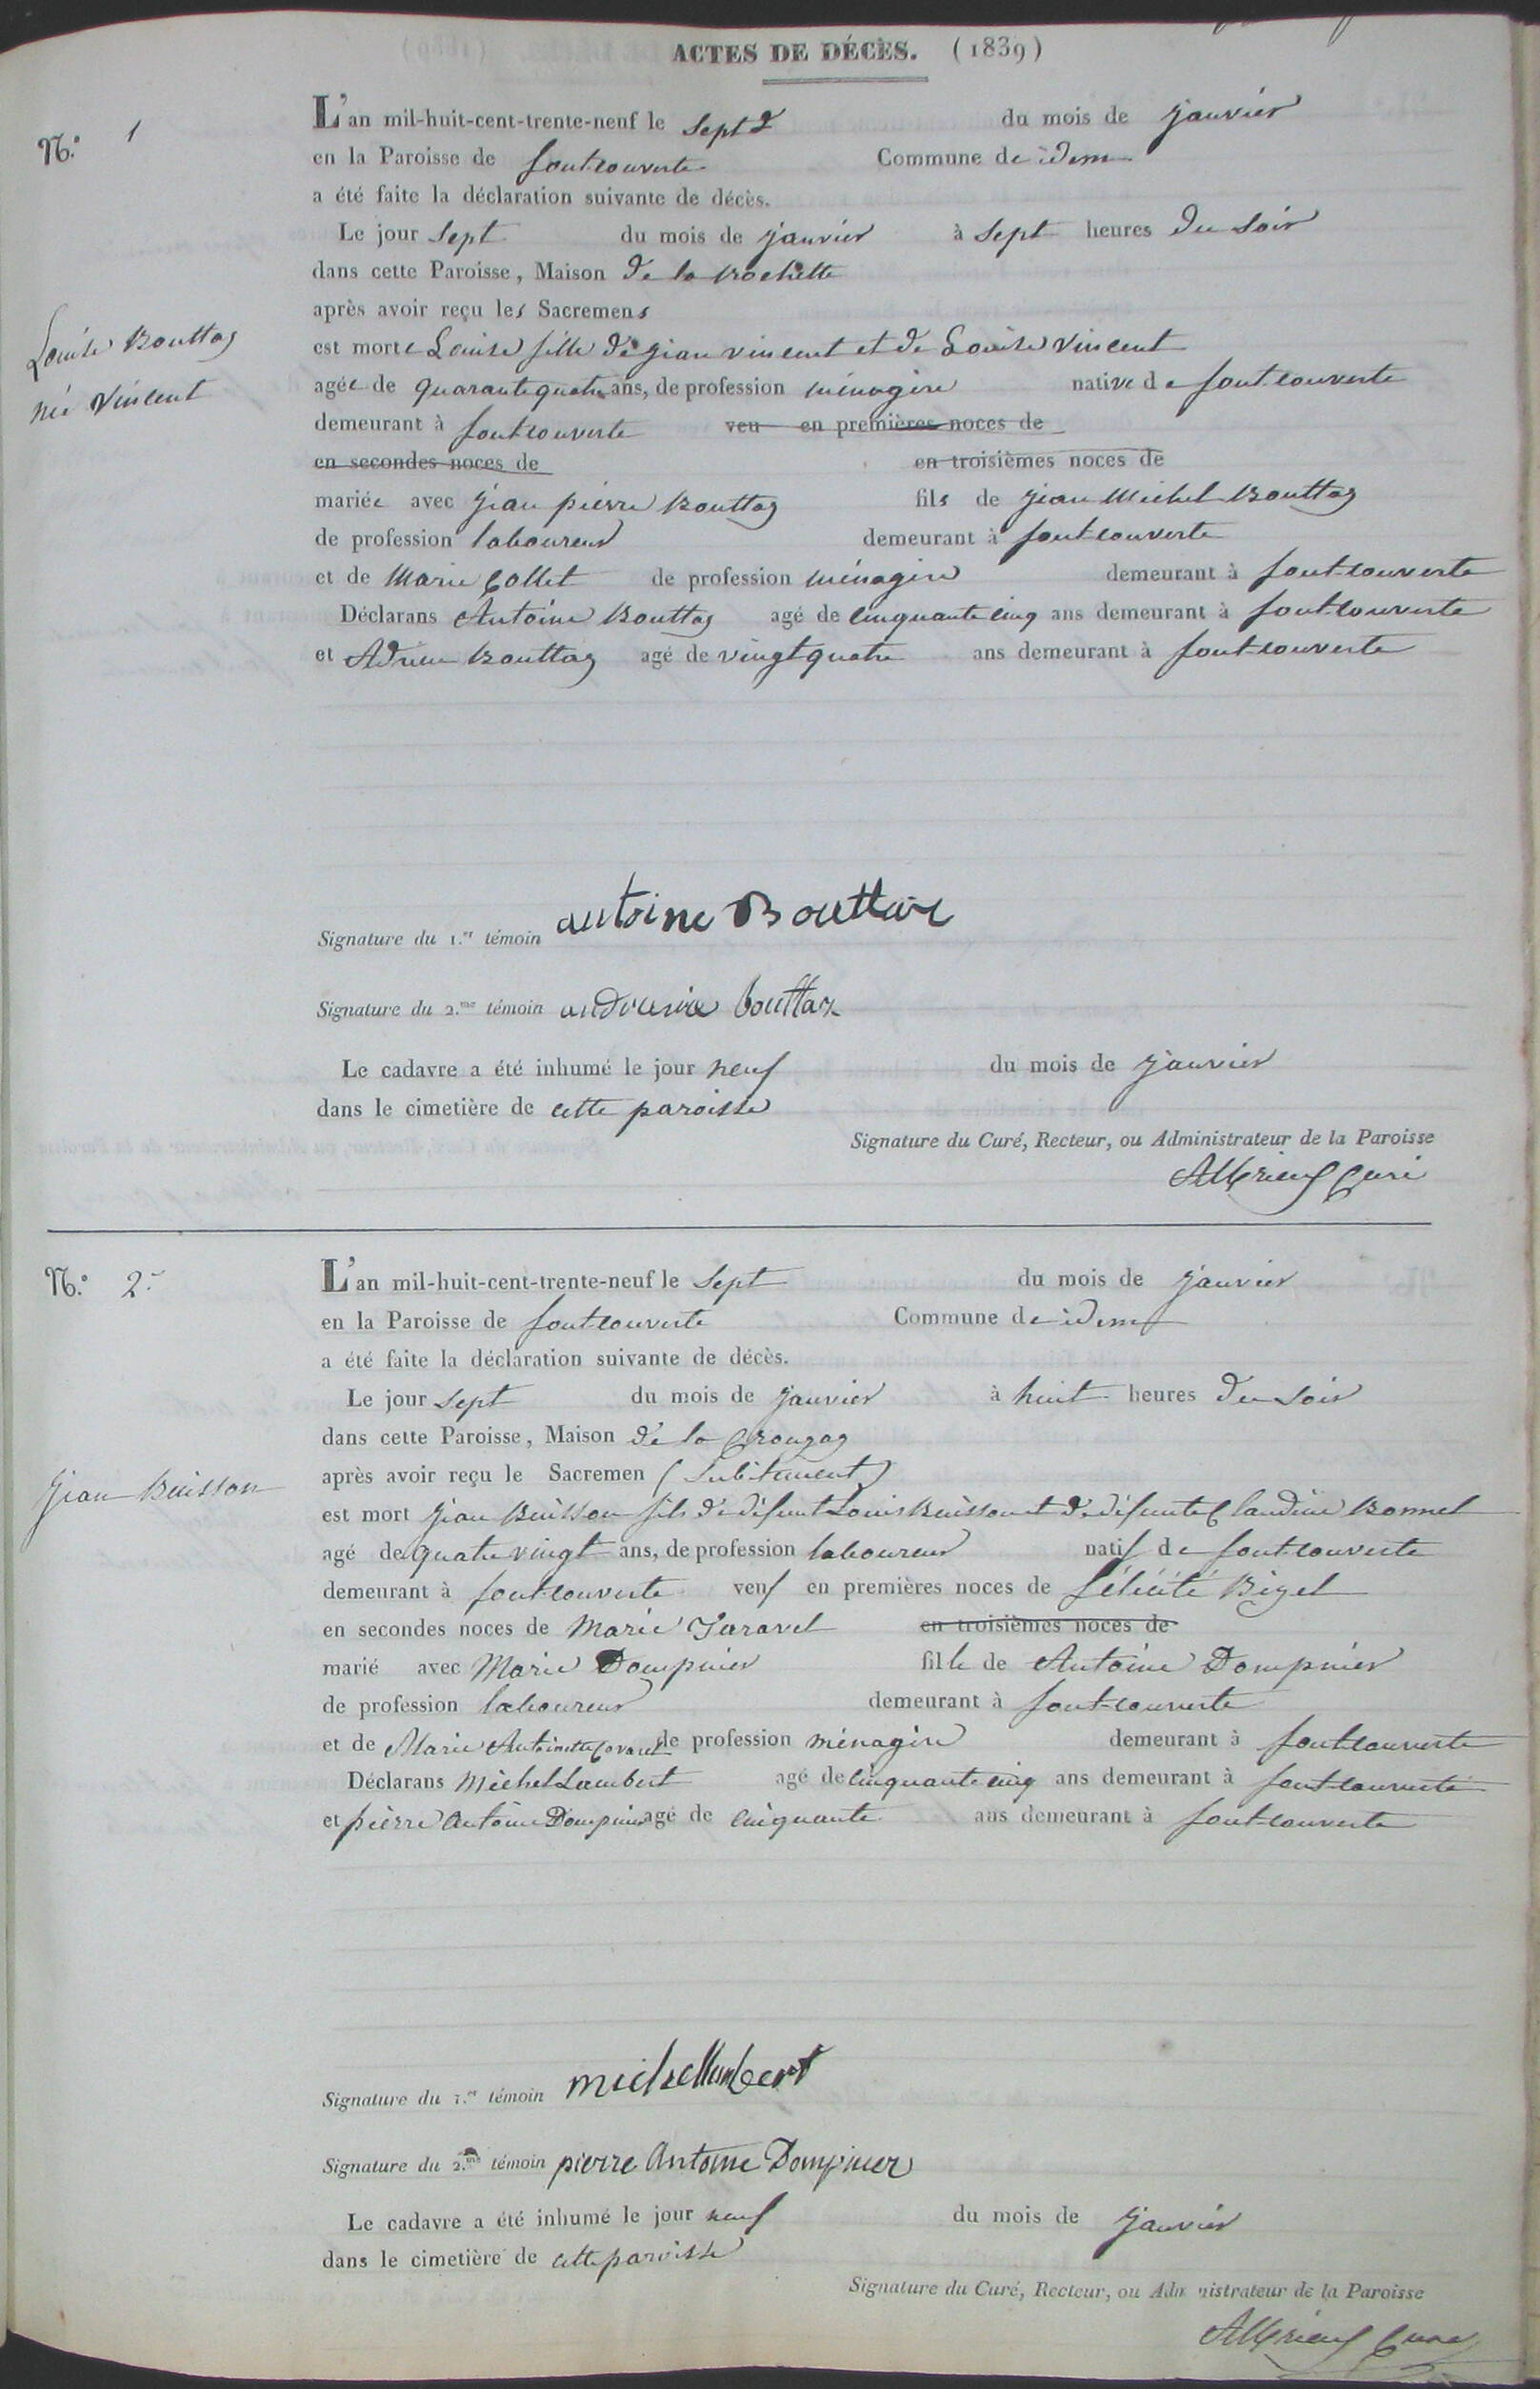 ACTES DE DÉCÈS. (1839)
N.° 1
L'an mil-huit-cent-trente-neuf le sept du mois de janvier
en la Paroisse de fontcouverte Commune de idem
a été faite la déclaration suivante de décès.
Le jour sept du mois de janvier à sept heures du soir
dans cette Paroisse, Maison de la Rochette
après avoir reçu les Sacremens
Louise Bouttaz
née Vincent
est morte Louise fille de jean vincent et de Louise Vincent
agée de quarante quatre ans, de profession ménagère native de fontcouverte
demeurant à fontcouverte veu en premières noces de
en secondes noces de en troisièmes noces de
mariée avec jean pierre Bouttaz fils de jean Michel Bouttaz
de profession laboureur demeurant à fontcouverte
et de Marie Collet de profession ménagère demeurant à fontcouverte
Déclarans Antoine Bouttaz agé de cinquante cinq ans demeurant à fontcouverte
et Bouttaz agé de vingt quatre ans demeurant à fontcouverte
Signature du 1.er témoin antoine Bouttaz
Signature du 2.me témoin bouttaz
Le cadavre a été inhumé le jour neuf du mois de janvier
dans le cimetière de cette paroisse
Signature du Curé, Recteur, ou Administrateur de la Paroisse
Curé
N.° 2
L'an mil-huit-cent-trente-neuf le sept du mois de janvier
en la Paroisse de fontcouverte Commune de idem
a été faite la déclaration suivante de décès.
Le jour sept du mois de janvier à huit heures du soir
dans cette Paroisse, Maison de la
après avoir reçu le Sacremen (subitement)
jean Buisson
est mort jean Buisson fils de défunt Louis Buisson et de défunte Claudine Bonnel
agé de quatre vingt ans, de profession laboureur natif de fontcouverte
demeurant à fontcouverte veuf en premières noces de félicité Bizel
en secondes noces de Marie Taravel en troisièmes noces de
marié avec Marie Dompnier fille de Antoine Dompnier
de profession laboureur demeurant à fontcouverte
et de Marie Antoinette de profession ménagère demeurant à fontcouverte
Déclarans Michel Lambert agé de cinquante cinq ans demeurant à fontcouverte
et pierre Antoine Dompnier agé de cinquante ans demeurant à fontcouverte
Signature du 1.er témoin michel lambert
Signature du 2.me témoin pierre Antoine Dompnier
Le cadavre a été inhumé le jour neuf du mois de janvier
dans le cimetière de cette paroisse
Signature du Curé, Recteur, ou Administrateur de la Paroisse
Curé